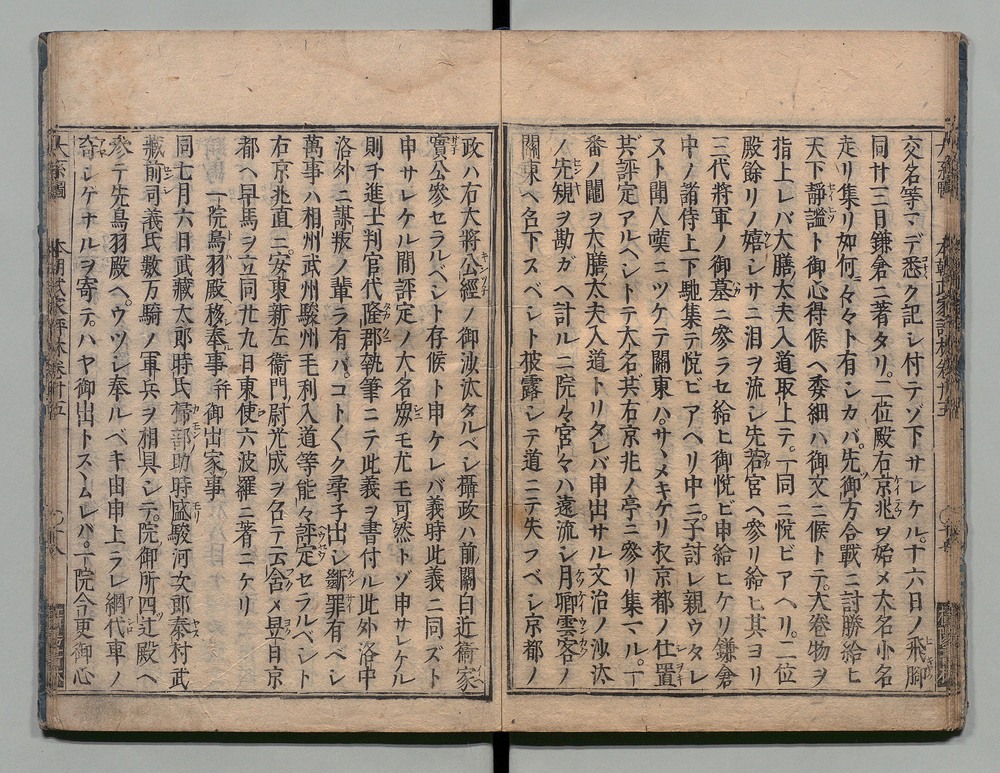 交名等マデ悉ク記シ付テゾ下サレケル。十六日ノ飛脚
同廿三日鎌倉ニ著タリ。二位殿右京兆ヲ始メ大名小名
走リ集リ如何々々ト有シカバ。先御方合戰ニ討勝給ヒ
天下靜謐ト御心得候ヘ委細ハ御文ニ候トテ。大卷物ヲ
指上レバ大膳大夫入道取上テ。一同ニ悦ビアヘリ。二位
殿餘リノ嬉シサニ泪ヲ流シ先若宮ヘ參リ給ヒ其ヨリ
三代將軍ノ御墓ニ參ラセ給ヒ御悦ビ申給ヒケリ鎌倉
中ノ諸侍上下馳集テ悦ビアヘリ中ニ子討レ親ウタレ
ヌト聞人嘆ニツケテ關東ハ。サヽメキケリ衣京都ノ仕置
其評定アルヘシトテ大名共右京兆ノ亭ニ參リ集マル。一
番ノ鬮ヲ大膳大夫入道トリタレバ申出サル文治ノ沙汰
ノ先規ヲ勘ガヘ計ルニ院々宮々ハ遠流シ月卿雲客ノ
關東ヘ名下スベシト披露シテ道ニテ失フベシ京都ノ
政ハ右大將公經ノ御沙汰タルベシ攝政ハ前關白近衞家
實公參セラルベシト存候ト申ケレバ義時此義ニ同ズト
申サレケル間評定ノ大名モ尤モ可然トゾ申サレケル
則チ進士判官代隆郡執筆ニテ此義ヲ書付ル此外洛中
洛外ニ謀叛ノ輩ラ有バ。コト〱ク尋子出シ斷罪有ベシ
萬事ハ相州武州駿州毛利入道等能々評定セラルベシト
右京兆直ニ安東新左衞門尉光成ヲ名テ云含メ昱日京
都ヘ早馬ヲ立同廿九日東使六波羅ニ著ニケリ
一院鳥羽殿移奉事 并 御出家事
同七月六日武藏太郎時氏掃部助時盛駿河次郎泰村武
藏前司義氏數万騎ノ軍兵ヲ相具シテ。院御所四辻殿ヘ
參テ先鳥羽殿ヘ。ウツシ奉ルベキ由申上ラレ網代車ノ
奇シケナルヲ寄テ。ハヤ御出トスヽムレバ。一院今更御心